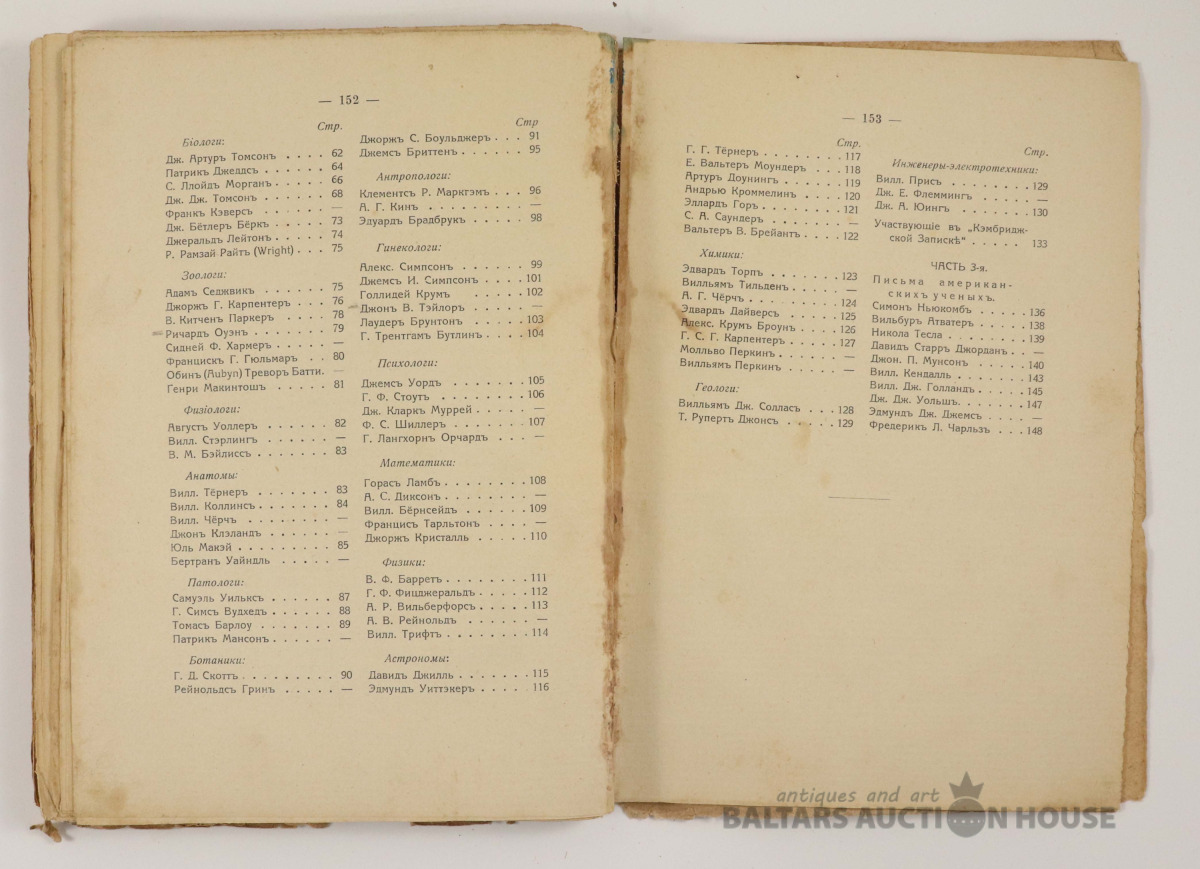 — 152 —
Стр.
Біологи:
Дж. Артуръ Томсонъ . . . . 62
Патрикъ Джеддсъ . . . . . . 64
С. Ллойдъ Морганъ . . . . . 66
Дж. Дж. Томсонъ . . . . . . 68
Франкъ Кэверсъ . . . . . . —
Дж. Бётлеръ Бёркъ . . . . . 73
Джеральдъ Лейтонъ . . . . . 74
Р. Рамзай Райтъ (Wright) . . . 75
Зоологи:
Адамъ Седжвикъ . . . . . . 75
Джоржъ Г. Карпентеръ . . . . 76
В. Китченъ Паркеръ . . . . . 78
Ричардъ Оуэнъ . . . . . . . 79
Сидней Ф. Хармеръ . . . . . —
Францискъ Г. Гюльмаръ . . 80
Обинъ (Aubyn) Треворъ Батти. —
Генри Макинтошъ . . . . . . 81
Физіологи:
Августъ Уоллеръ . . . . . . 82
Вилл. Стэрлингъ . . . . . . —
В. М. Бэйлиссъ . . . . . . . 83
Анатомы:
Вилл. Тёрнеръ . . . . . . . 83
Вилл. Коллинсъ . . . . . . . 84
Вилл. Чёрчъ . . . . . . . . —
Джонъ Клэландъ . . . . . . —
Юль Макэй . . . . . . . . . 85
Бертранъ Уайндль . . . . . —
Патологи:
Самуэль Уильксъ . . . . . . 87
Г. Симсъ Вудхедъ . . . . . . 88
Томасъ Барлоу . . . . . . . 89
Патрикъ Мансонъ . . . . . . —
Ботаники:
Г. Д. Скоттъ . . . . . . . . . 90
Рейнольдсъ Гринъ . . . . . —
Стр
Джоржъ С. Боульджеръ . . . 91
Джемсъ Бриттенъ . . . . . . 95
Антропологи:
Клементсъ Р. Марктэмъ . . . 96
А. Г. Кинъ . . . . . . . . . —
Эдуардъ Брадбрукъ . . . . . 98
Гинекологи:
Алекс. Симпсонъ . . . . . . 99
Джемсъ И. Симпсонъ . . . . 101
Голлидей Крумъ . . . . . 102
Джонъ В. Тэйлоръ . . . . . —
Лаудеръ Брунтонъ . . . . . 103
Г. Трентгамъ Бутлинъ . . . . 104
Психологи:
Джемсъ Уордъ . . . . . . . 105
Г. Ф. Стоутъ . . . . . . . . 106
Дж. Кларкъ Муррей . . . . . —
Ф. С. Шиллеръ . . . . . . . 107
Г. Лангхорнъ Орчардъ . . . —
Математики:
Горасъ Ламбъ . . . . . . . . 108
А. С. Диксонъ . . . . . . . . —
Вилл. Бёрнсейдъ . . . . . . 109
Францисъ Тарльтонъ . . . . —
Джоржъ Кристалль . . . . . 110
Физики:
В. Ф. Барретъ . . . . . . . . 111
Г. Ф. Фицджеральдъ . . . . . 112
А. Р. Вильберфорсъ . . . . . 113
А. В. Рейнольдъ . . . . . . —
Вилл. Трифтъ . . . . . . . . 114
Астрономы:
Давидъ Джилль . . . . . . . 115
Эдмундъ Уиттэкеръ . . . . . 116
— 153 —
Стр.
Г. Г. Тёрнеръ . . . . . . . . 117
Е. Вальтеръ Моундеръ . . . 118
Артуръ Доунингъ . . . . . . 119
Андрью Кроммелинъ . . . . 120
Эллардъ Горъ . . . . . . . . 121
С. А. Саундеръ . . . . . . . —
Вальтеръ В. Брейантъ . . . . 122
Химики:
Эдвардъ Торпъ . . . . . . . 123
Вилльямъ Тильденъ . . . . . —
А. Г. Чёрчъ . . . . . . . . . 124
Эдвардъ Дайверсъ . . . . . 125
Алекс. Крумъ Броунъ . . . . 126
Г. С. Г. Карпентеръ . . . . . 127
Молльво Перкинъ . . . . . . —
Вилльямъ Перкинъ . . . . . —
Геологи:
Вилльямъ Дж. Солласъ . . . 128
Т. Рупертъ Джонсъ . . . . . 129
Стр.
Инженеры-электротехники:
Вилл. Присъ . . . . . . . . 129
Дж. Е. Флеммингъ . . . . . —
Дж. А. Юингъ . . . . . . . 130
Участвующіе въ „Кэмбридж-
ской Запискѣ“ . . . . . 133
ЧАСТЬ 3-я.
Письма американ-
скихъ ученыхъ.
Симонъ Ньюкомбъ . . . . . 136
Вильбуръ Атватеръ . . . . . 138
Никола Тесла . . . . . . . . 139
Давидъ Старръ Джорданъ . . —
Джон. П. Мунсонъ . . . . . 140
Вилл. Кендалль . . . . . . . 143
Вилл. Дж. Голландъ . . . . . 145
Дж. Дж. Уольшъ. . . . . . . 147
Эдмундъ Дж. Джемсъ . . . . —
Фредерикъ Л. Чарльзъ . . . 148
antiques and art
BALTARS AUCTION HOUSE